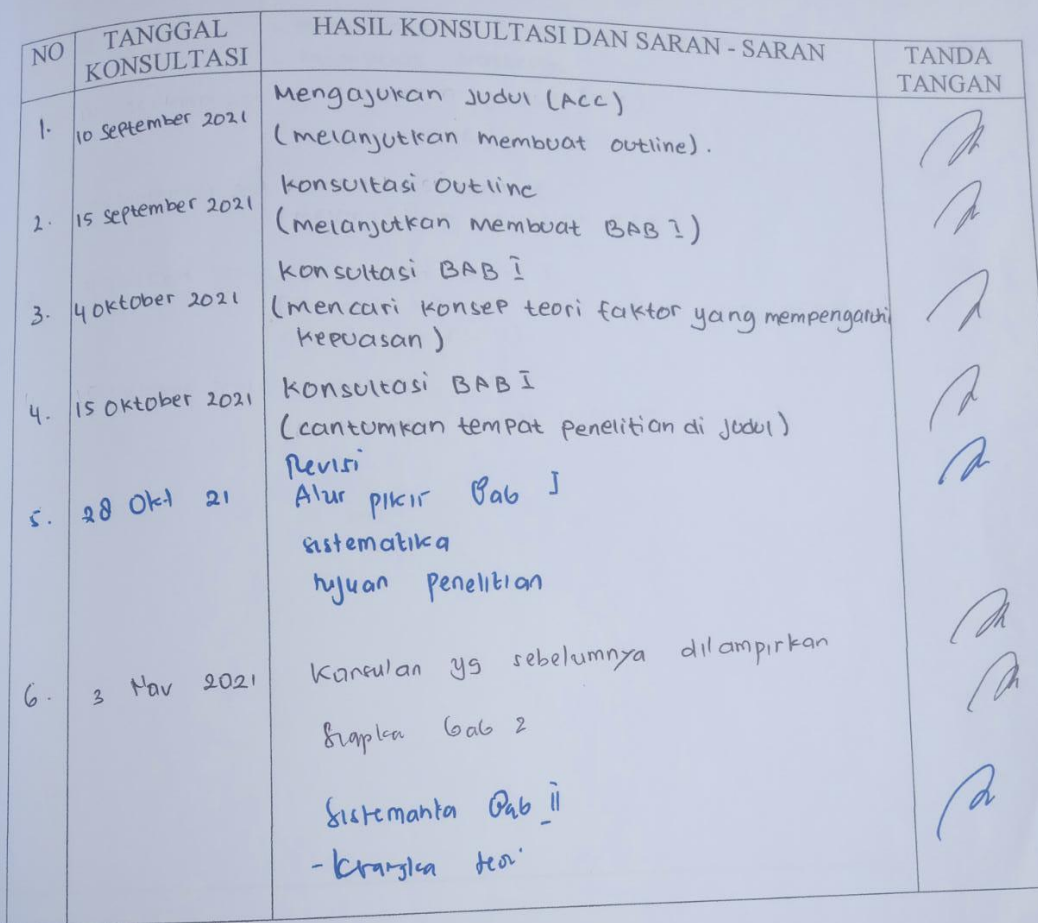 NO
TANGGAL KONSULTASI
HASIL KONSULTASI DAN SARAN - SARAN
TANDA TANGAN
1. 10 September 2021
Mengajukan Judul (ACC)
(melanjutkan membuat outline).
2. 15 September 2021
Konsultasi Outline
(melanjutkan membuat BAB I)
3. 4 Oktober 2021
Konsultasi BAB I
(mencari konsep teori faktor yang mempengaruhi
kepuasan)
4. 15 Oktober 2021
Konsultasi BAB I
(cantumkan tempat penelitian di judul)
5. 28 Okt 21
Revisi
Alur pikir Bab I
sistematika
tujuan penelitian
6. 3 Nov 2021
Konsulan yg sebelumnya dilampirkan
Siapka bab 2
Bab II
- teori